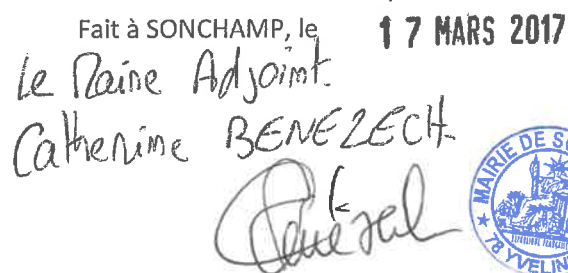 Fait à SONCHAMP, le 17 MARS 2017
Le Maire Adjoint.
Catherine BENEZECH
MAIRIE DE SO
78 YVELINE